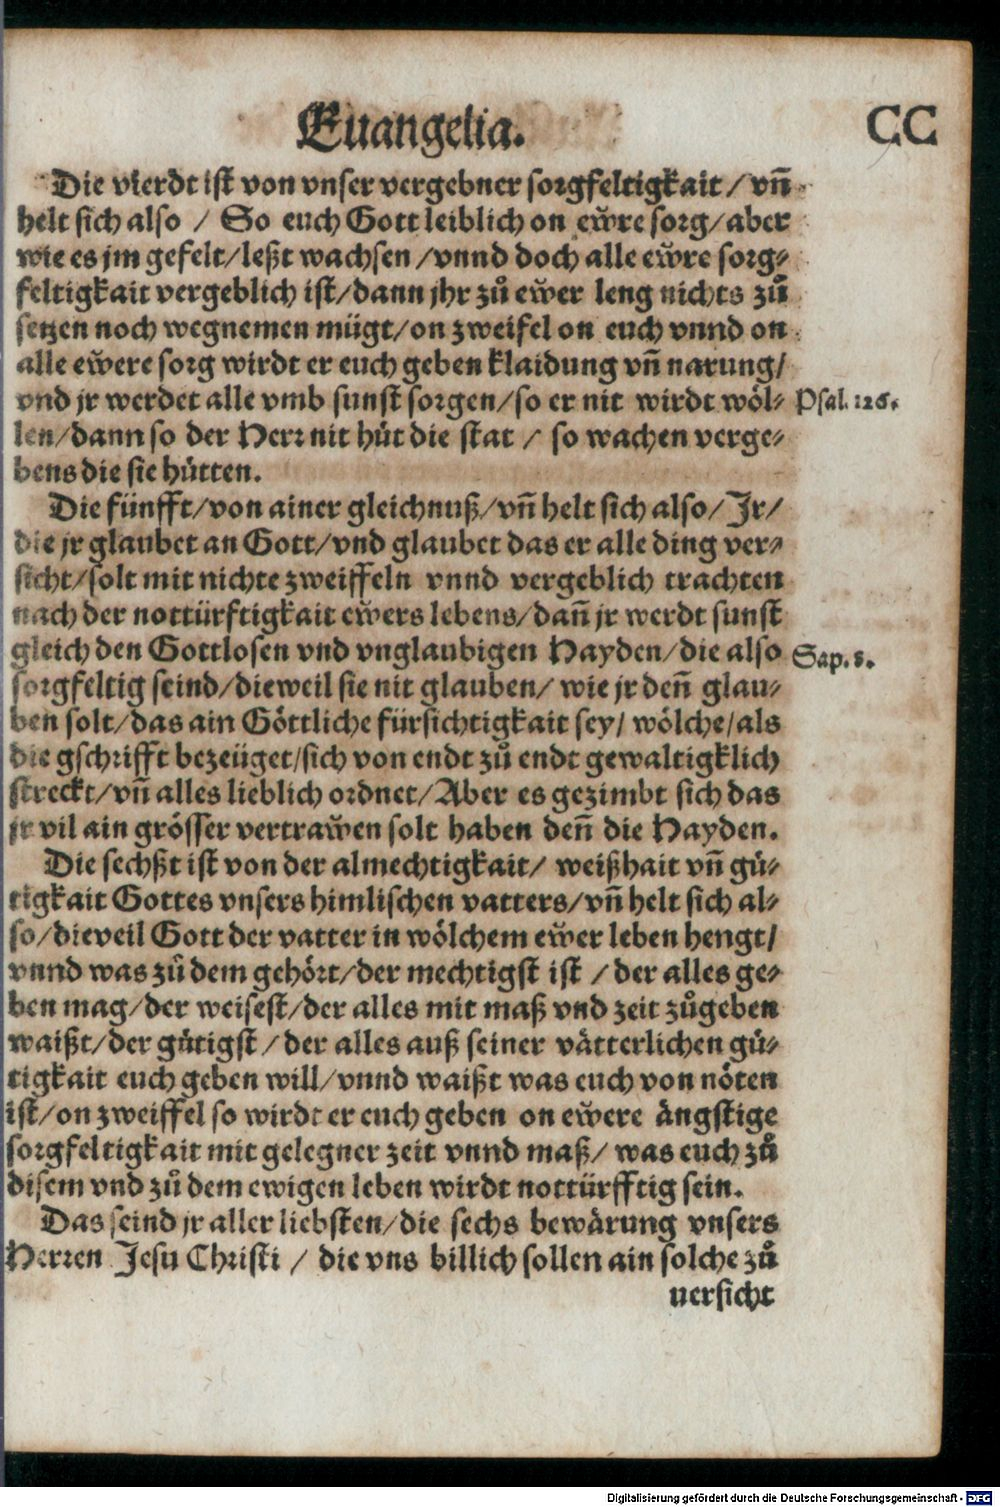 Euangelia. CC
Die vierdt ist von vnser vergebner sorgfeltigkait / vñ
helt sich also / So euch Gott leiblich on ew̌re sorg / aber
wie es jm gefelt / leßt wachsen / vnnd doch alle ew̌re sorg⸗
feltigkait vergeblich ist / dann jhr zů ew̌er leng nichts zů
setzen noch wegnemen mügt / on zweifel on euch vnnd on
alle ew̌ere sorg wirdt er euch geben klaidung vñ narung /
vnd jr werdet alle vmb sunst sorgen / so er nit wirdt wöl⸗
Psal. 126.
len / dann so der Herr nit hüt die stat / so wachen verge⸗
bens die sie hütten.
Die fünfft / von ainer gleichnuß / vñ helt sich also / Jr /
die jr glaubet an Gott / vnd glaubet das er alle ding ver⸗
sicht / solt mit nichte zweiffeln vnnd vergeblich trachten
nach der nottürftigkait ew̌ers lebens / dañ jr werdt sunst
gleich den Gottlosen vnd vnglaubigen Hayden / die also
Sap. 8.
sorgfeltig seind / dieweil sie nit glauben / wie jr deñ glau⸗
ben solt / das ain Göttliche fürsichtigkait sey / wölche / als
die gschrifft bezeüget / sich von endt zů endt gewaltigklich
streckt / vñ alles lieblich ordnet / Aber es gezimbt sich das
jr vil ain grösser vertraw̌en solt haben deñ die Hayden.
Die sechßt ist von der almechtigkait / weißhait vñ gü⸗
tigkait Gottes vnsers himlischen vatters / vñ helt sich al⸗
so / dieveil Gott der vatter in wölchem ew̌er leben hengt /
vnnd was zů dem gehört / der mechtigst ist / der alles ge⸗
ben mag / der weisest / der alles mit maß vnd zeit zůgeben
waißt / der gütigst / der alles auß seiner vätterlichen gü⸗
tigkait euch geben will / vnnd waißt was euch von nöten
ist / on zweiffel so wirdt er euch geben on ew̌ere ängstige
sorgfeltigkait mit gelegner zeit vnnd maß / was euch zů
disem vnd zů dem ewigen leben wirdt nottürfftig sein.
Das seind jr aller liebsten / die sechs bewärung vnsers
Herren Jesu Christi / die vns billich sollen ain solche zů
uersicht
Digitalisierung gefördert durch die Deutsche Forschungsgemeinschaft - DFG